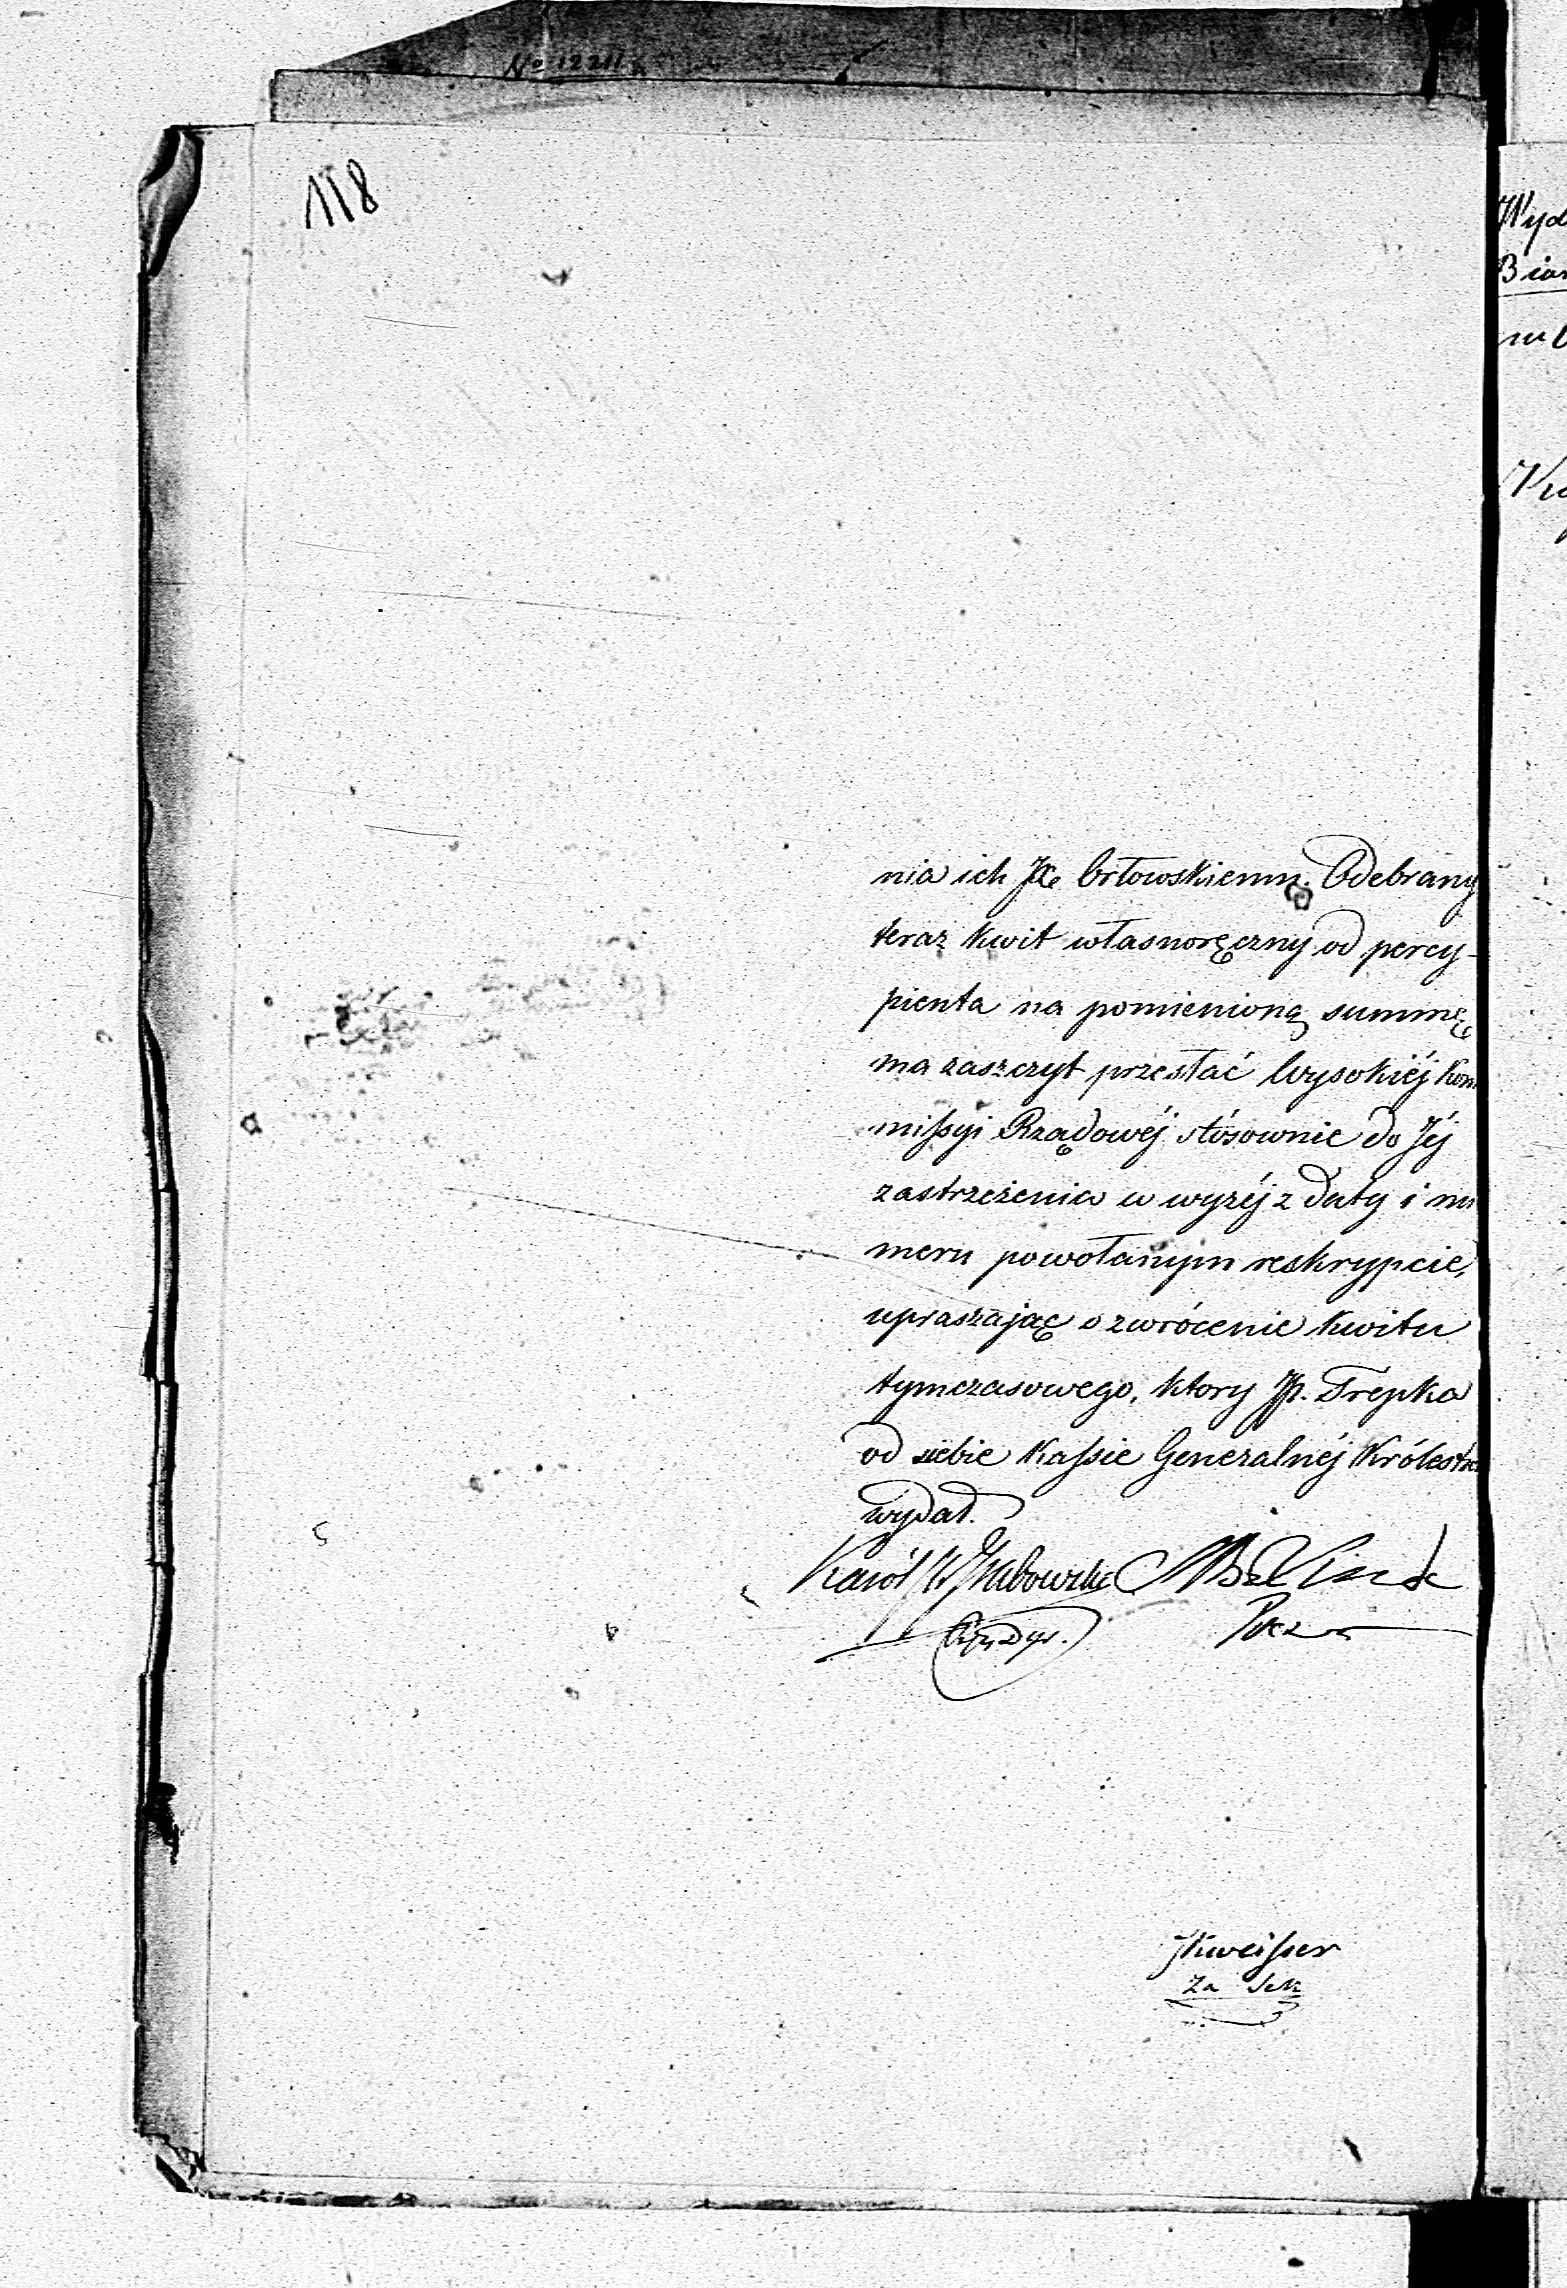 No 12211
118
nia ich JX. Orłowskiemu. Odebrany
teraz kwit własnoręczny od percy-
pienta na pomienioną summę
ma zaszczyt przesłać Wysokiéj Kom
missyi Rządowéj stósownie do Jéj
zastrzeżenia w wyżéj z daty i nu
meru powołanym reskrypcie,
upraszając o zwrócenie kwitu
tymczasowego, ktory JP. Trepka
od siebie Kassie Generalnéj Królestwa
wydał.
Karól
Za Sek
Wyd